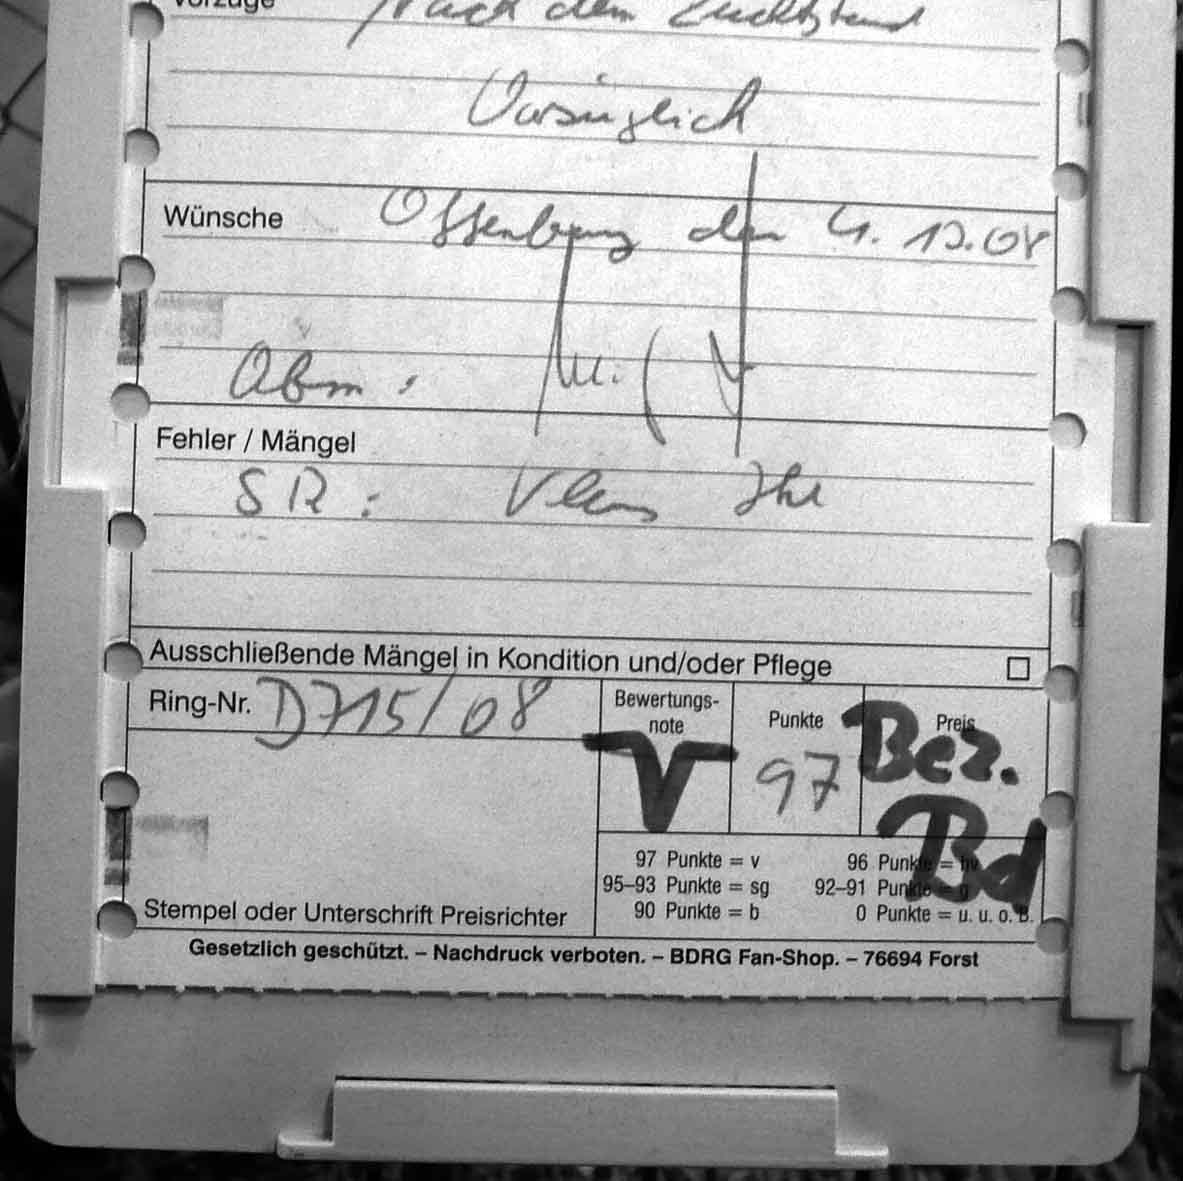 Vorzüge Nach dem Zuchtstand
Vorzüglich
Wünsche Offenburg den 4. 12.08
Obm :
Fehler / Mängel
SR :
Ausschließende Mängel in Kondition und/oder Pflege
Ring-Nr. D715/08
Bewertungs-
note
Punkte
Preis
V
97
Bez.
Bd
97 Punkte = v
96 Punkte = hv
95–93 Punkte = sg
92–91 Punkte = g
90 Punkte = b
0 Punkte = u. u. o. B.
Stempel oder Unterschrift Preisrichter
Gesetzlich geschützt. – Nachdruck verboten. – BDRG Fan-Shop. – 76694 Forst